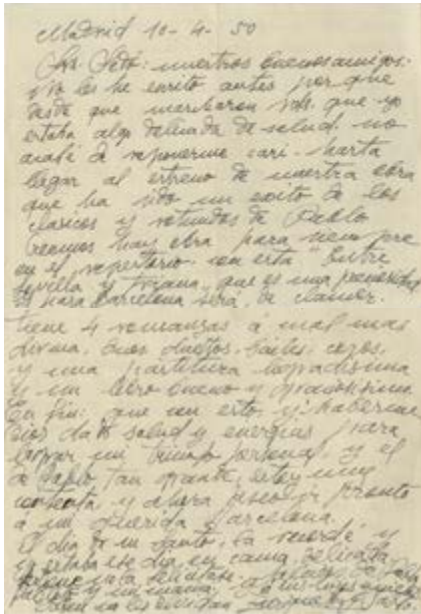 Madrid 10-4-50
nuestros buenos amigos:
No les he escrito antes por que
desde que marcharon Vds. que yo
estaba algo delicada de salud. no
acabé de reponerme casi hasta
llegar al estreno de nuestra obra
que ha sido un exito de los
clasicos y rotundos de Pablo
hay obra para siempre
en el repertorio. con esta "Entre
Sevilla y Triana, que es una preciosidad
para Barcelona será de clamor.
tiene 4 romanzas á cual mas
divina. duetos. bailes. coros.
y una partitura
y un libro bueno y graciosisimo
En fin: que con esto y haberme
Dios dado salud y energias para
un triunfo personal. y el
de Pablo, tan grande, estoy muy
contenta. y ahora pronto
á mi querida Barcelona.
El dia de su santo, la recordé y
yo estaba ese dia en cama, delicada
Pablito y mi mamá
no les olvidan